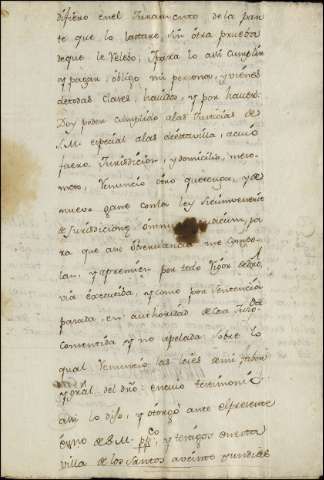 difiero en el Juramento de la par
te que lo lastare, sin otra prueba
de que le relebo; Y para lo asi cumplir
y pagar, obligo mi persona, y vienes
de todas clases, havidos, y por haver.
Doy poder cumplido a las Justicias de
S.M. especial a las de esta villa, a cuio
fuero Jurisdicion, y domicilio, me so
meto, renuncio otro que tenga, y de
nuevo gane con la ley sicumvenerit
de Jurisdicione omnium judicum, pa
ra que a su observancia me compe
lan, y apremien por todo rigor de dro,
via executiba, y como por sentencia
pasada en authoridad de cosa Juzgda
consentida y no apelada sobre lo
qual renuncio las leies de mi fabor
y gral. del dro. en cuio testimonio
asi lo dijo, y otorgó ante el presente
essno de S.M. ppco, y testigos en esta
villa de los Santos a veinte y un dias